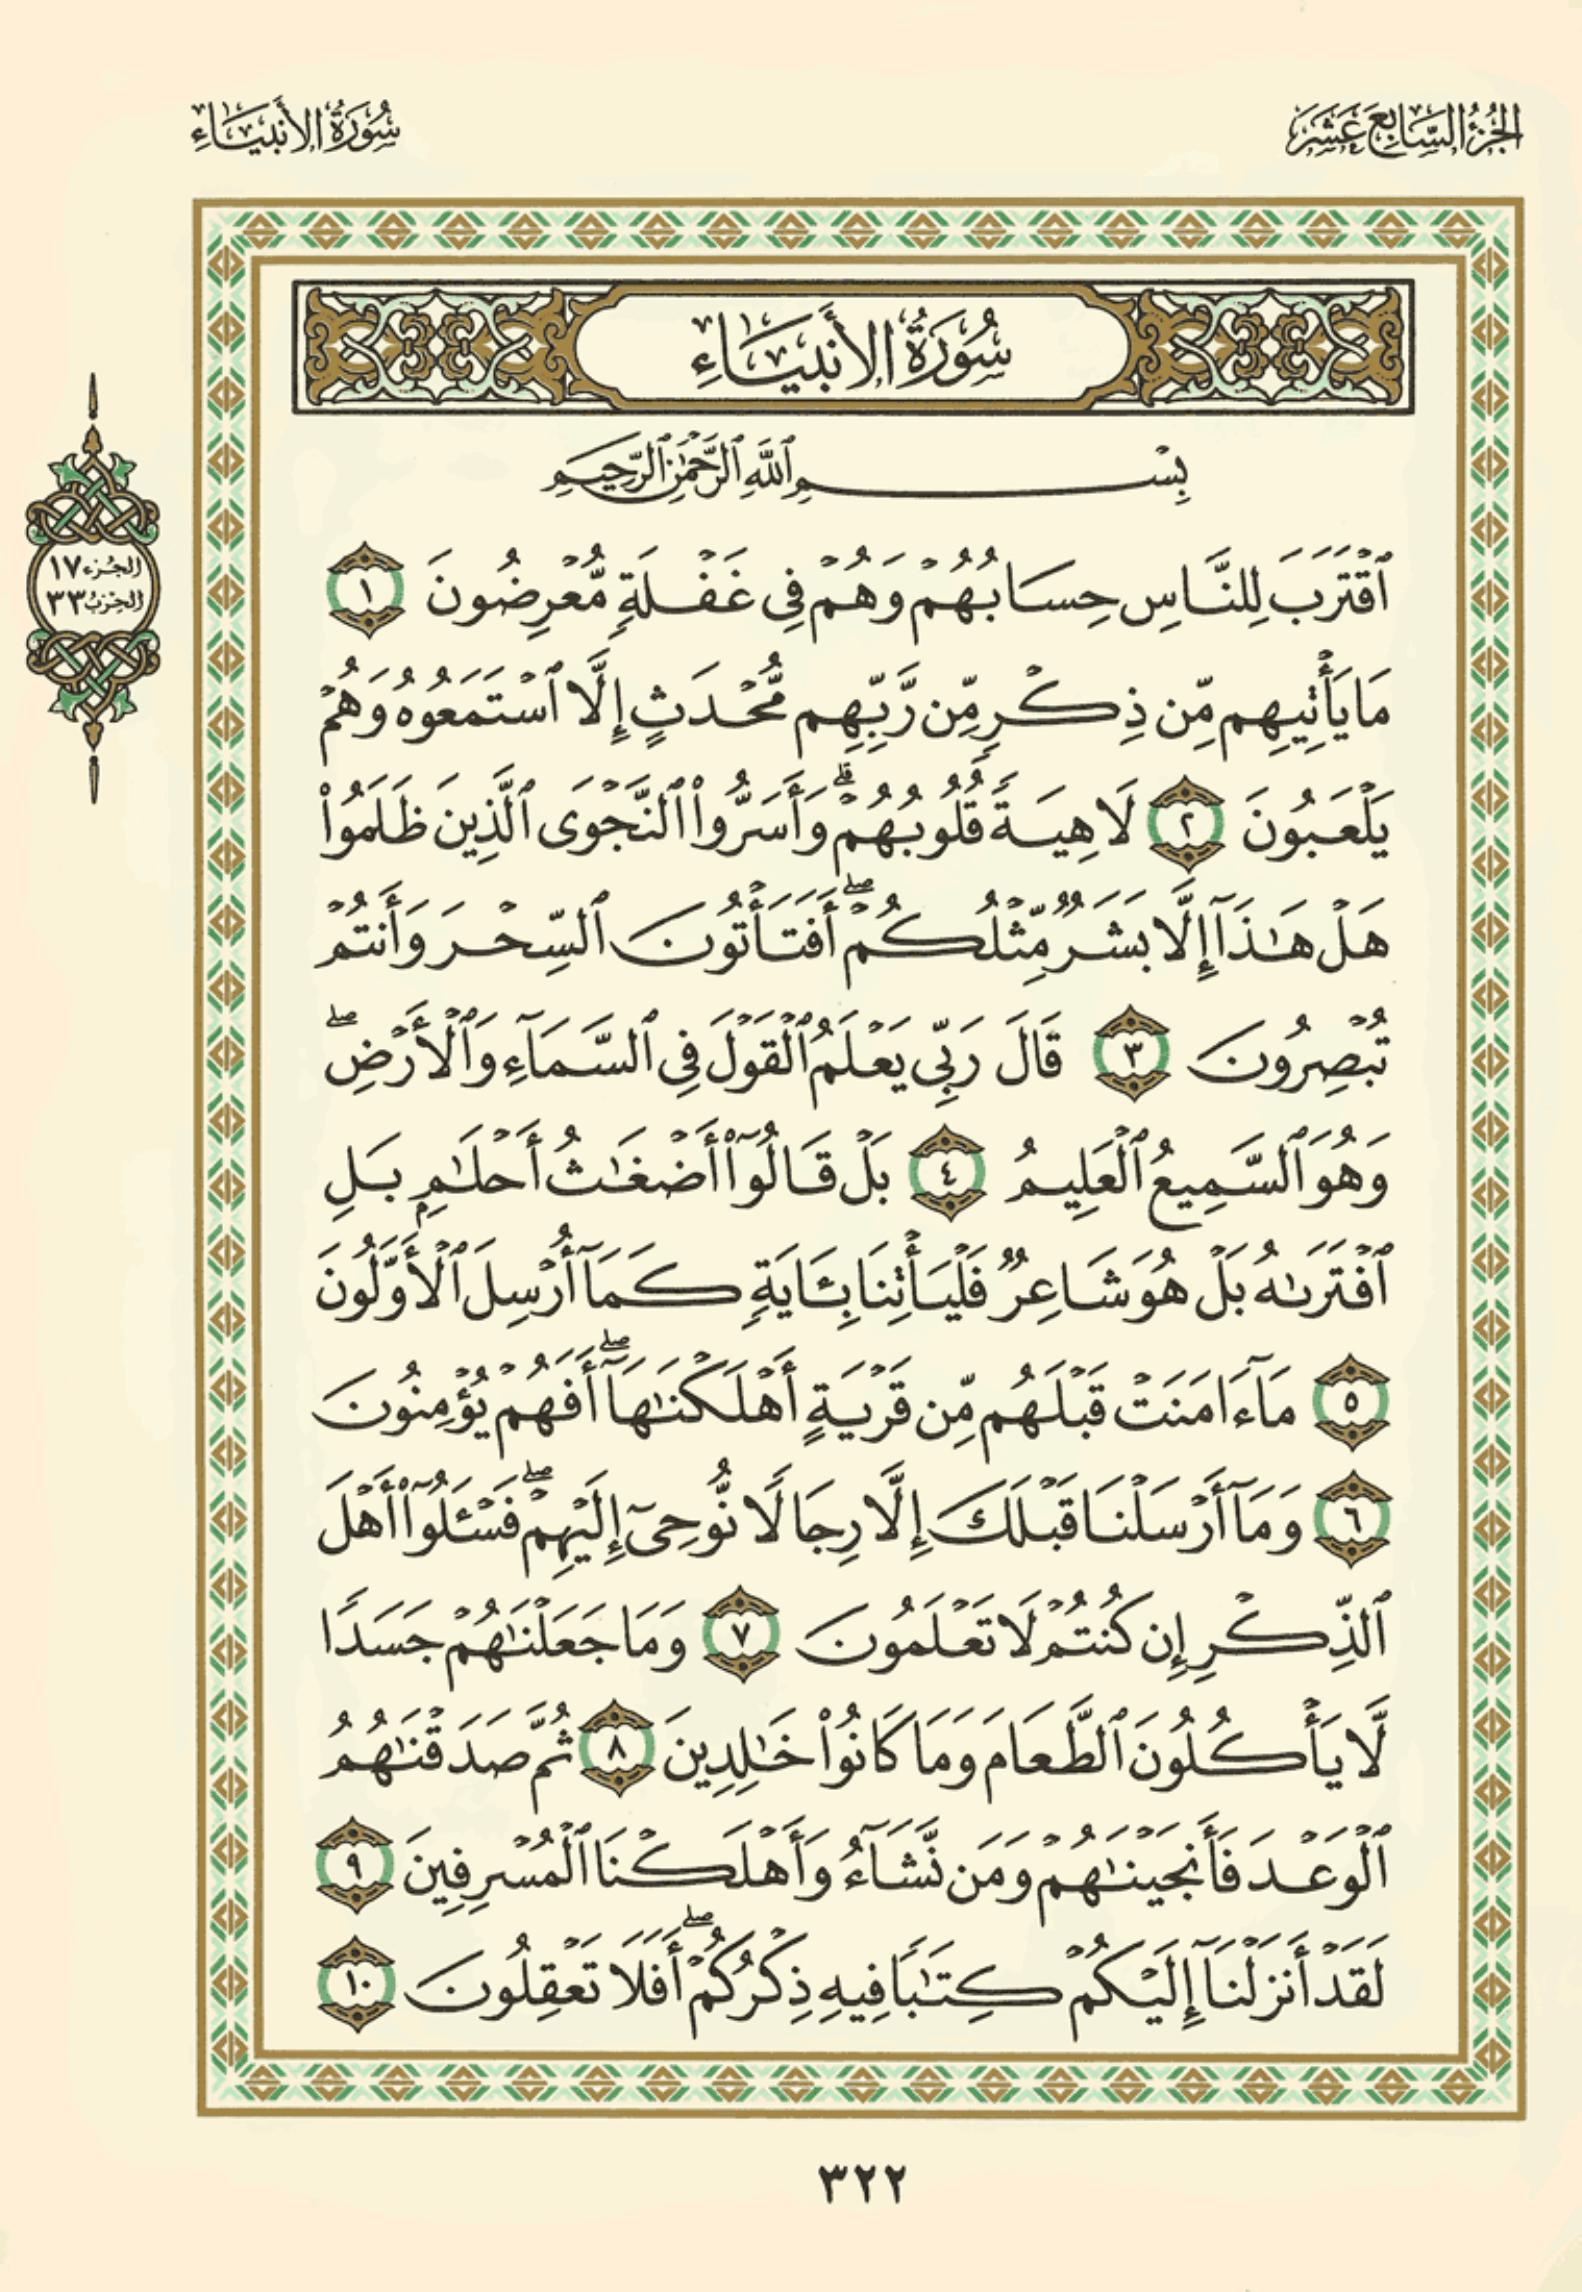 الجزء السابع عشر
سورة الأنبياء
الجزء ١٧
الحزب ٣٣
سُورَةُ الأَنبِيَاءِ
بِسْمِ ٱللَّهِ ٱلرَّحْمَٰنِ ٱلرَّحِيمِ
ٱقْتَرَبَ لِلنَّاسِ حِسَابُهُمْ وَهُمْ فِى غَفْلَةٍ مُّعْرِضُونَ ١
مَا يَأْتِيهِم مِّن ذِكْرٍ مِّن رَّبِّهِم مُّحْدَثٍ إِلَّا ٱسْتَمَعُوهُ وَهُمْ
يَلْعَبُونَ ٢ لَاهِيَةً قُلُوبُهُمْ ۗ وَأَسَرُّوا۟ ٱلنَّجْوَى ٱلَّذِينَ ظَلَمُوا۟
هَلْ هَٰذَآ إِلَّا بَشَرٌ مِّثْلُكُمْ ۖ أَفَتَأْتُونَ ٱلسِّحْرَ وَأَنتُمْ
تُبْصِرُونَ ٣ قَالَ رَبِّى يَعْلَمُ ٱلْقَوْلَ فِى ٱلسَّمَآءِ وَٱلْأَرْضِ ۖ
وَهُوَ ٱلسَّمِيعُ ٱلْعَلِيمُ ٤ بَلْ قَالُوٓا۟ أَضْغَٰثُ أَحْلَٰمٍۭ بَلِ
ٱفْتَرَىٰهُ بَلْ هُوَ شَاعِرٌ فَلْيَأْتِنَا بِـَٔايَةٍ كَمَآ أُرْسِلَ ٱلْأَوَّلُونَ
٥ مَآ ءَامَنَتْ قَبْلَهُم مِّن قَرْيَةٍ أَهْلَكْنَٰهَآ ۖ أَفَهُمْ يُؤْمِنُونَ
٦ وَمَآ أَرْسَلْنَا قَبْلَكَ إِلَّا رِجَالًا نُّوحِىٓ إِلَيْهِمْ ۖ فَسْـَٔلُوٓا۟ أَهْلَ
ٱلذِّكْرِ إِن كُنتُمْ لَا تَعْلَمُونَ ٧ وَمَا جَعَلْنَٰهُمْ جَسَدًا
لَّا يَأْكُلُونَ ٱلطَّعَامَ وَمَا كَانُوا۟ خَٰلِدِينَ ٨ ثُمَّ صَدَقْنَٰهُمُ
ٱلْوَعْدَ فَأَنجَيْنَٰهُمْ وَمَن نَّشَآءُ وَأَهْلَكْنَا ٱلْمُسْرِفِينَ ٩
لَقَدْ أَنزَلْنَآ إِلَيْكُمْ كِتَٰبًا فِيهِ ذِكْرُكُمْ ۖ أَفَلَا تَعْقِلُونَ ١٠
٣٢٢